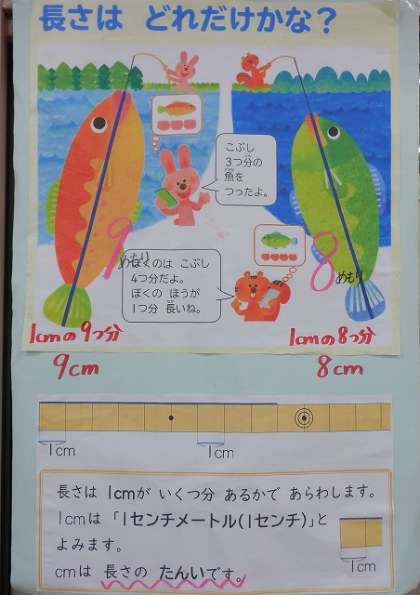 長さは どれだけかな？
こぶし
3つ分の
魚を
つったよ。
ぼくのは こぶし
4つ分だよ。
ぼくの ほうが
1つ分 長いね。
9
めもり
8
めもり
1cmの9つ分
9cm
1cmの8つ分
8cm
1cm
1cm
長さは 1cmが いくつ分 あるかで あらわします。
1cmは 「1センチメートル(1センチ)」と
よみます。
cmは 長さの たんいです。
1cm